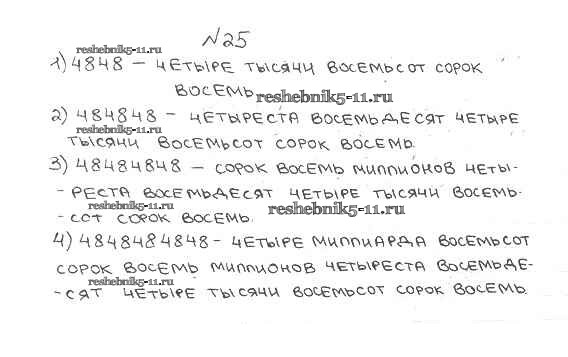 №25
reshebnik5-11.ru
1) 4848 – ЧЕТЫРЕ ТЫСЯЧИ ВОСЕМЬСОТ СОРОК
ВОСЕМЬ reshebnik5-11.ru
2) 484848 – ЧЕТЫРЕСТА ВОСЕМЬДЕСЯТ ЧЕТЫРЕ
reshebnik5-11.ru
ТЫСЯЧИ ВОСЕМЬСОТ СОРОК ВОСЕМЬ.
3) 48484848 – СОРОК ВОСЕМЬ МИЛЛИОНОВ ЧЕТЫ-
-РЕСТА ВОСЕМЬДЕСЯТ ЧЕТЫРЕ ТЫСЯЧИ ВОСЕМЬ-
reshebnik5-11.ru
-СОТ СОРОК ВОСЕМЬ. reshebnik5-11.ru
4) 4848484848 – ЧЕТЫРЕ МИЛЛИАРДА ВОСЕМЬСОТ
СОРОК ВОСЕМЬ МИЛЛИОНОВ ЧЕТЫРЕСТА ВОСЕМЬДЕ-
reshebnik5-11.ru
-СЯТ ЧЕТЫРЕ ТЫСЯЧИ ВОСЕМЬСОТ СОРОК ВОСЕМЬ.